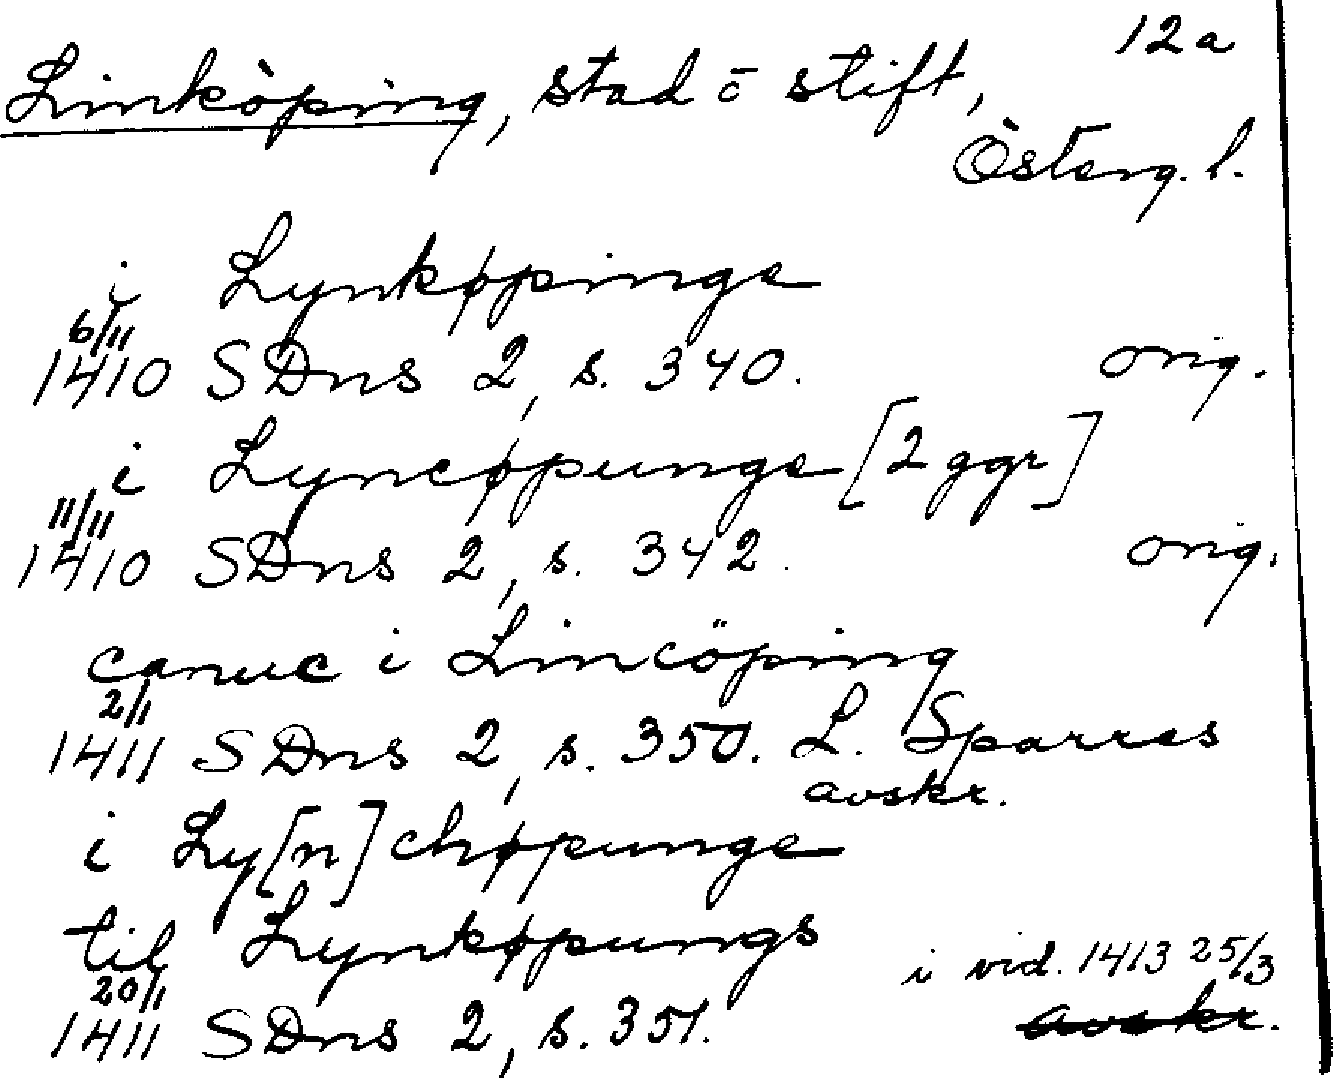 12a
Linköping, stad o stift,
Österg. l.
i Lynkøpinge
6/11
1410 SDns 2, s. 340. orig.
i Lyncøpunge [2 ggr]
11/11
1410 SDns 2, s. 342. orig.
canuc i Lincöping
2/1
1411 SDns 2, s. 350. L. Sparres
avskr.
i Ly[n]chøpunge
til Lynkøpungs
i vid. 1413 25/3
20/1
1411 SDns 2, s. 351. avskr.